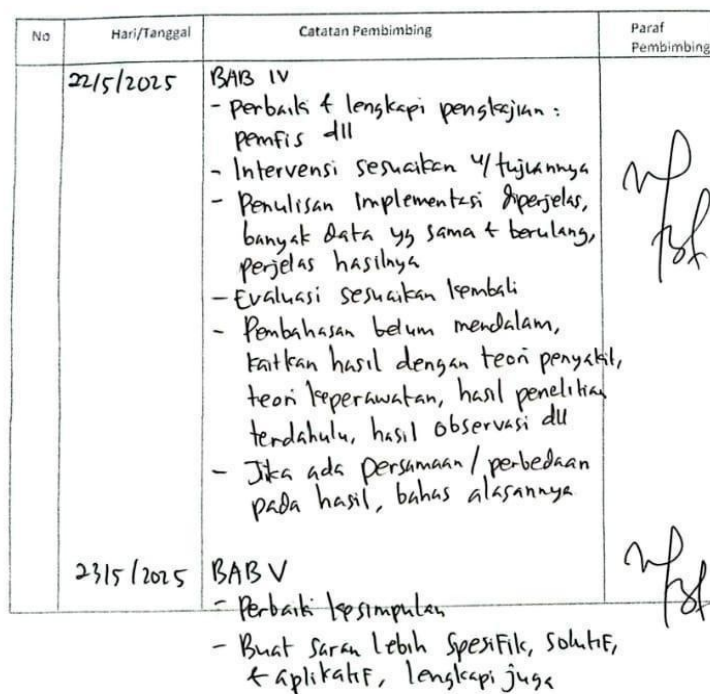 No Hari/Tanggal Catatan Pembimbing Paraf Pembimbing
22/5/2025 BAB IV
- Perbaiki & lengkapi pengkajian :
pemfis dll
- Intervensi sesuaikan u/ tujuannya
- Penulisan implementasi diperjelas,
banyak data yg sama & berulang,
perjelas hasilnya
- Evaluasi sesuaikan kembali
- Pembahasan belum mendalam,
kaitkan hasil dengan teori penyakit,
teori keperawatan, hasil penelitian
terdahulu, hasil observasi dll
- Jika ada persamaan / perbedaan
pada hasil, bahas alasannya
23/5/2025 BAB V
- Perbaiki kesimpulan
- Buat saran lebih spesifik, solutif,
& aplikatif, lengkapi juga